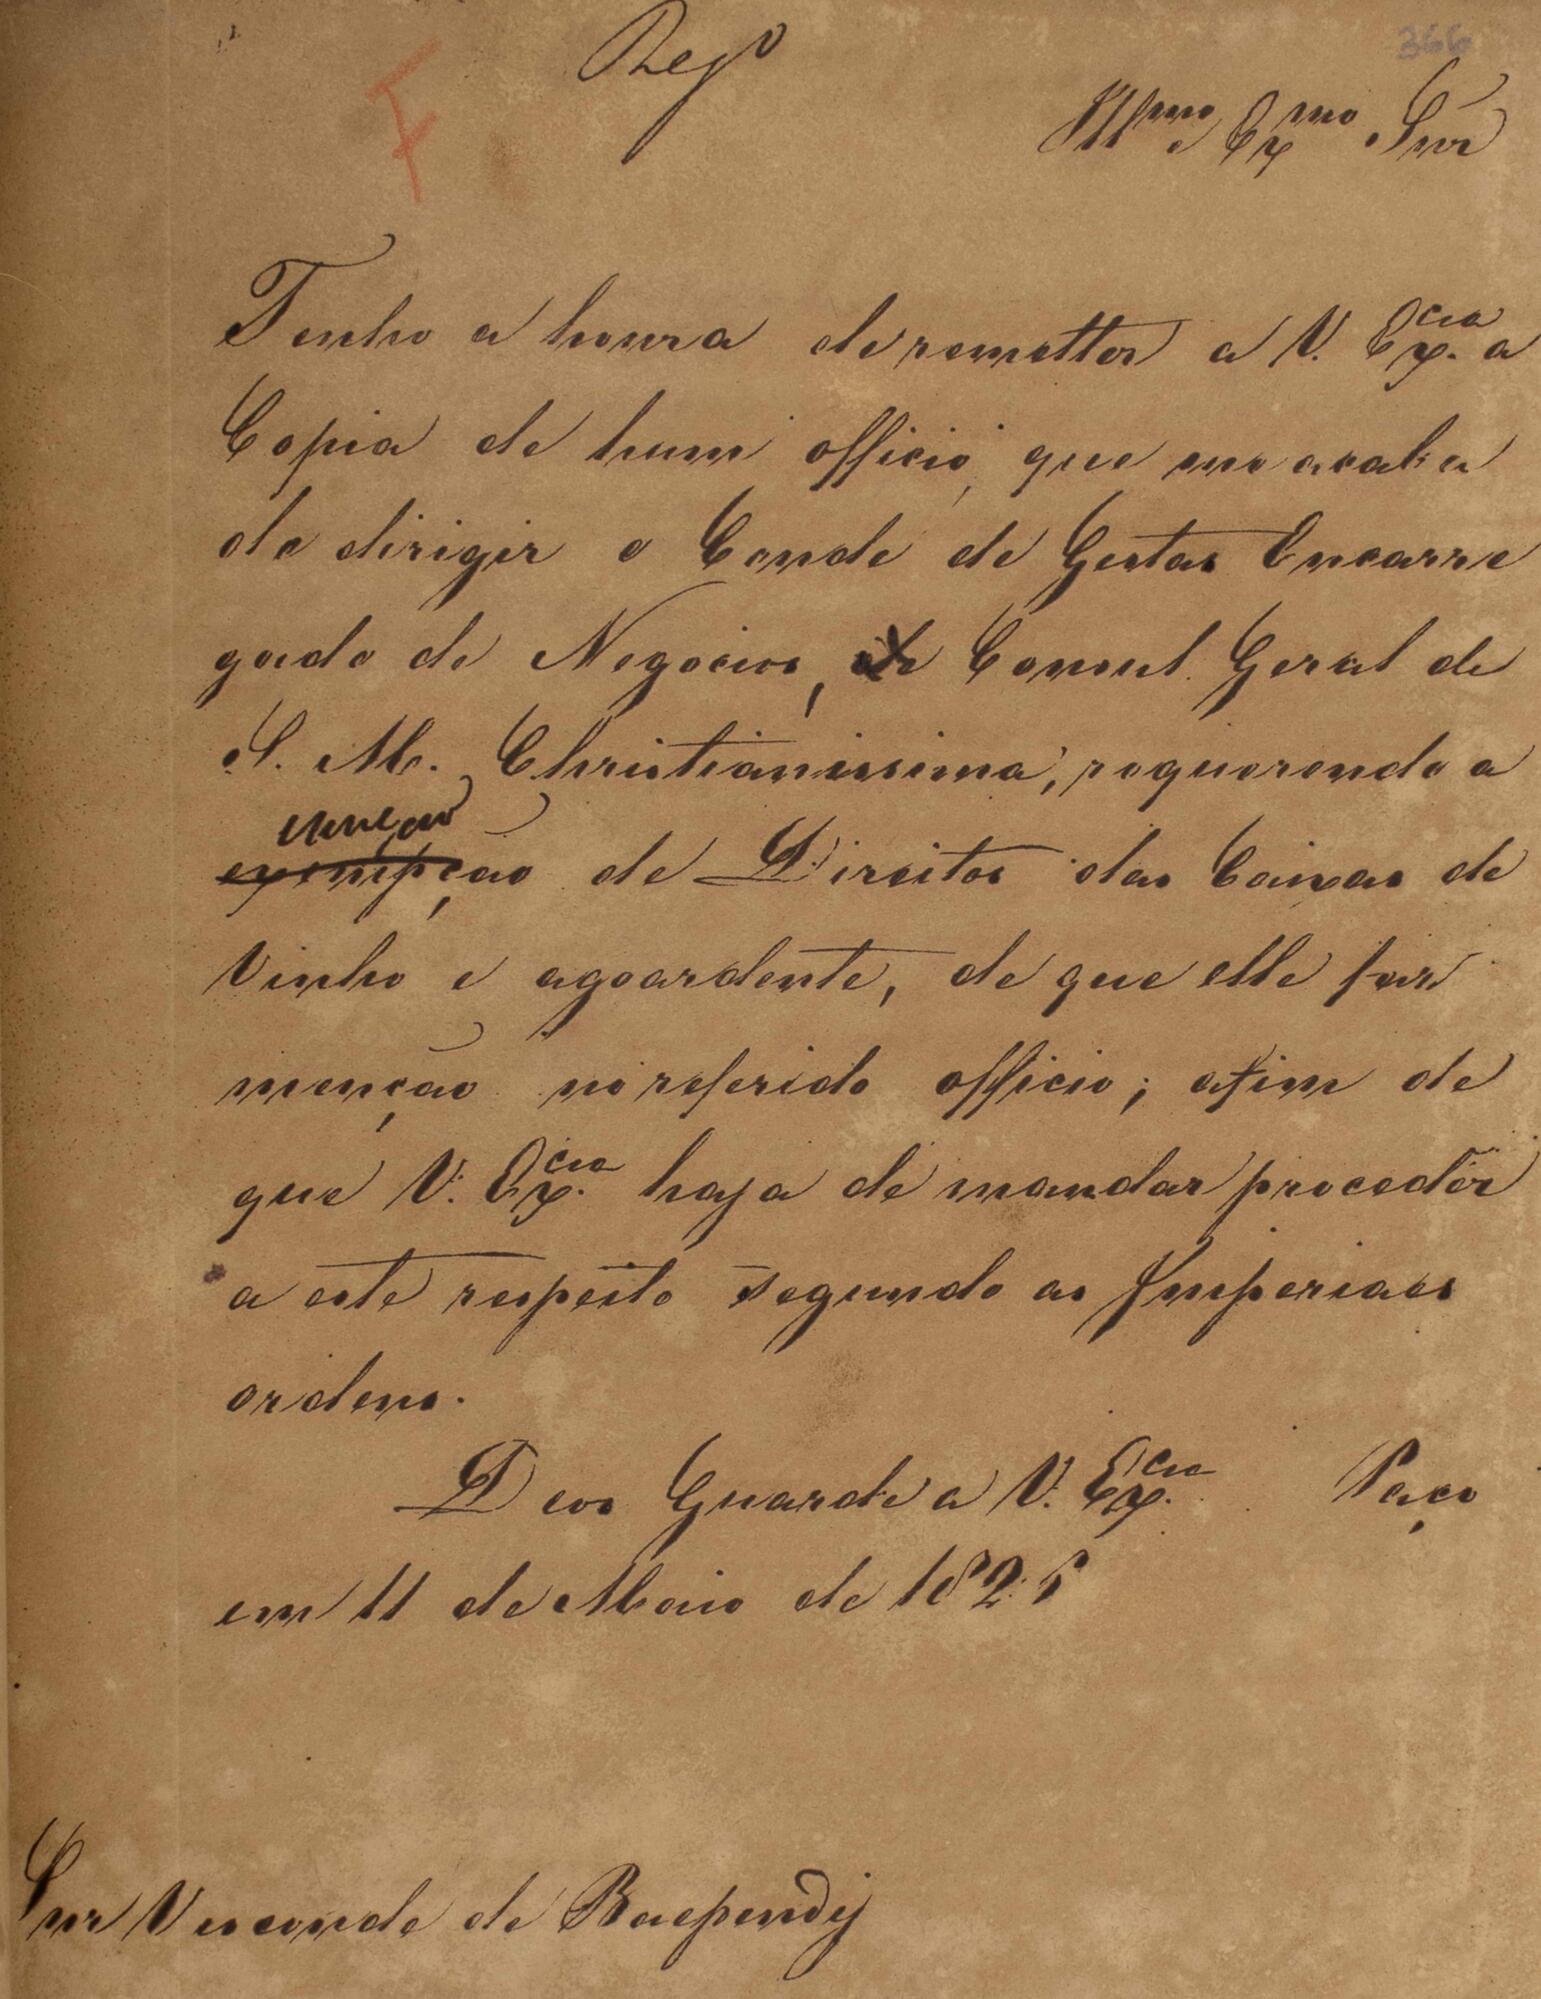 366
F
Reg.º
Ill.mo e Ex.mo Snr
Tenho a honra de remetter a V. Ex.cia a
Copia de hum officio, que me acaba
de dirigir o Conde de Gestas Encarre
gado de Negocios, e Consul Geral de
S. M. Christianissima, requerendo a
izenção
exempção de Direitos das Caixas de
Vinho e agoardente, de que elle faz
menção no referido officio; afim de
que V. Ex.cia haja de mandar proceder
a este respeito segundo as Imperiaes
ordens.
Deos Guarde a V. Ex.cia Paço
em 11 de Maio de 1825
Snr Visconde de Baependÿ